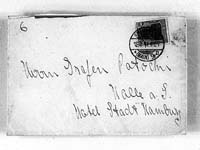 6
Herrn Grafen Potocki
Halle a. S.
Hotel Stadt Hamburg